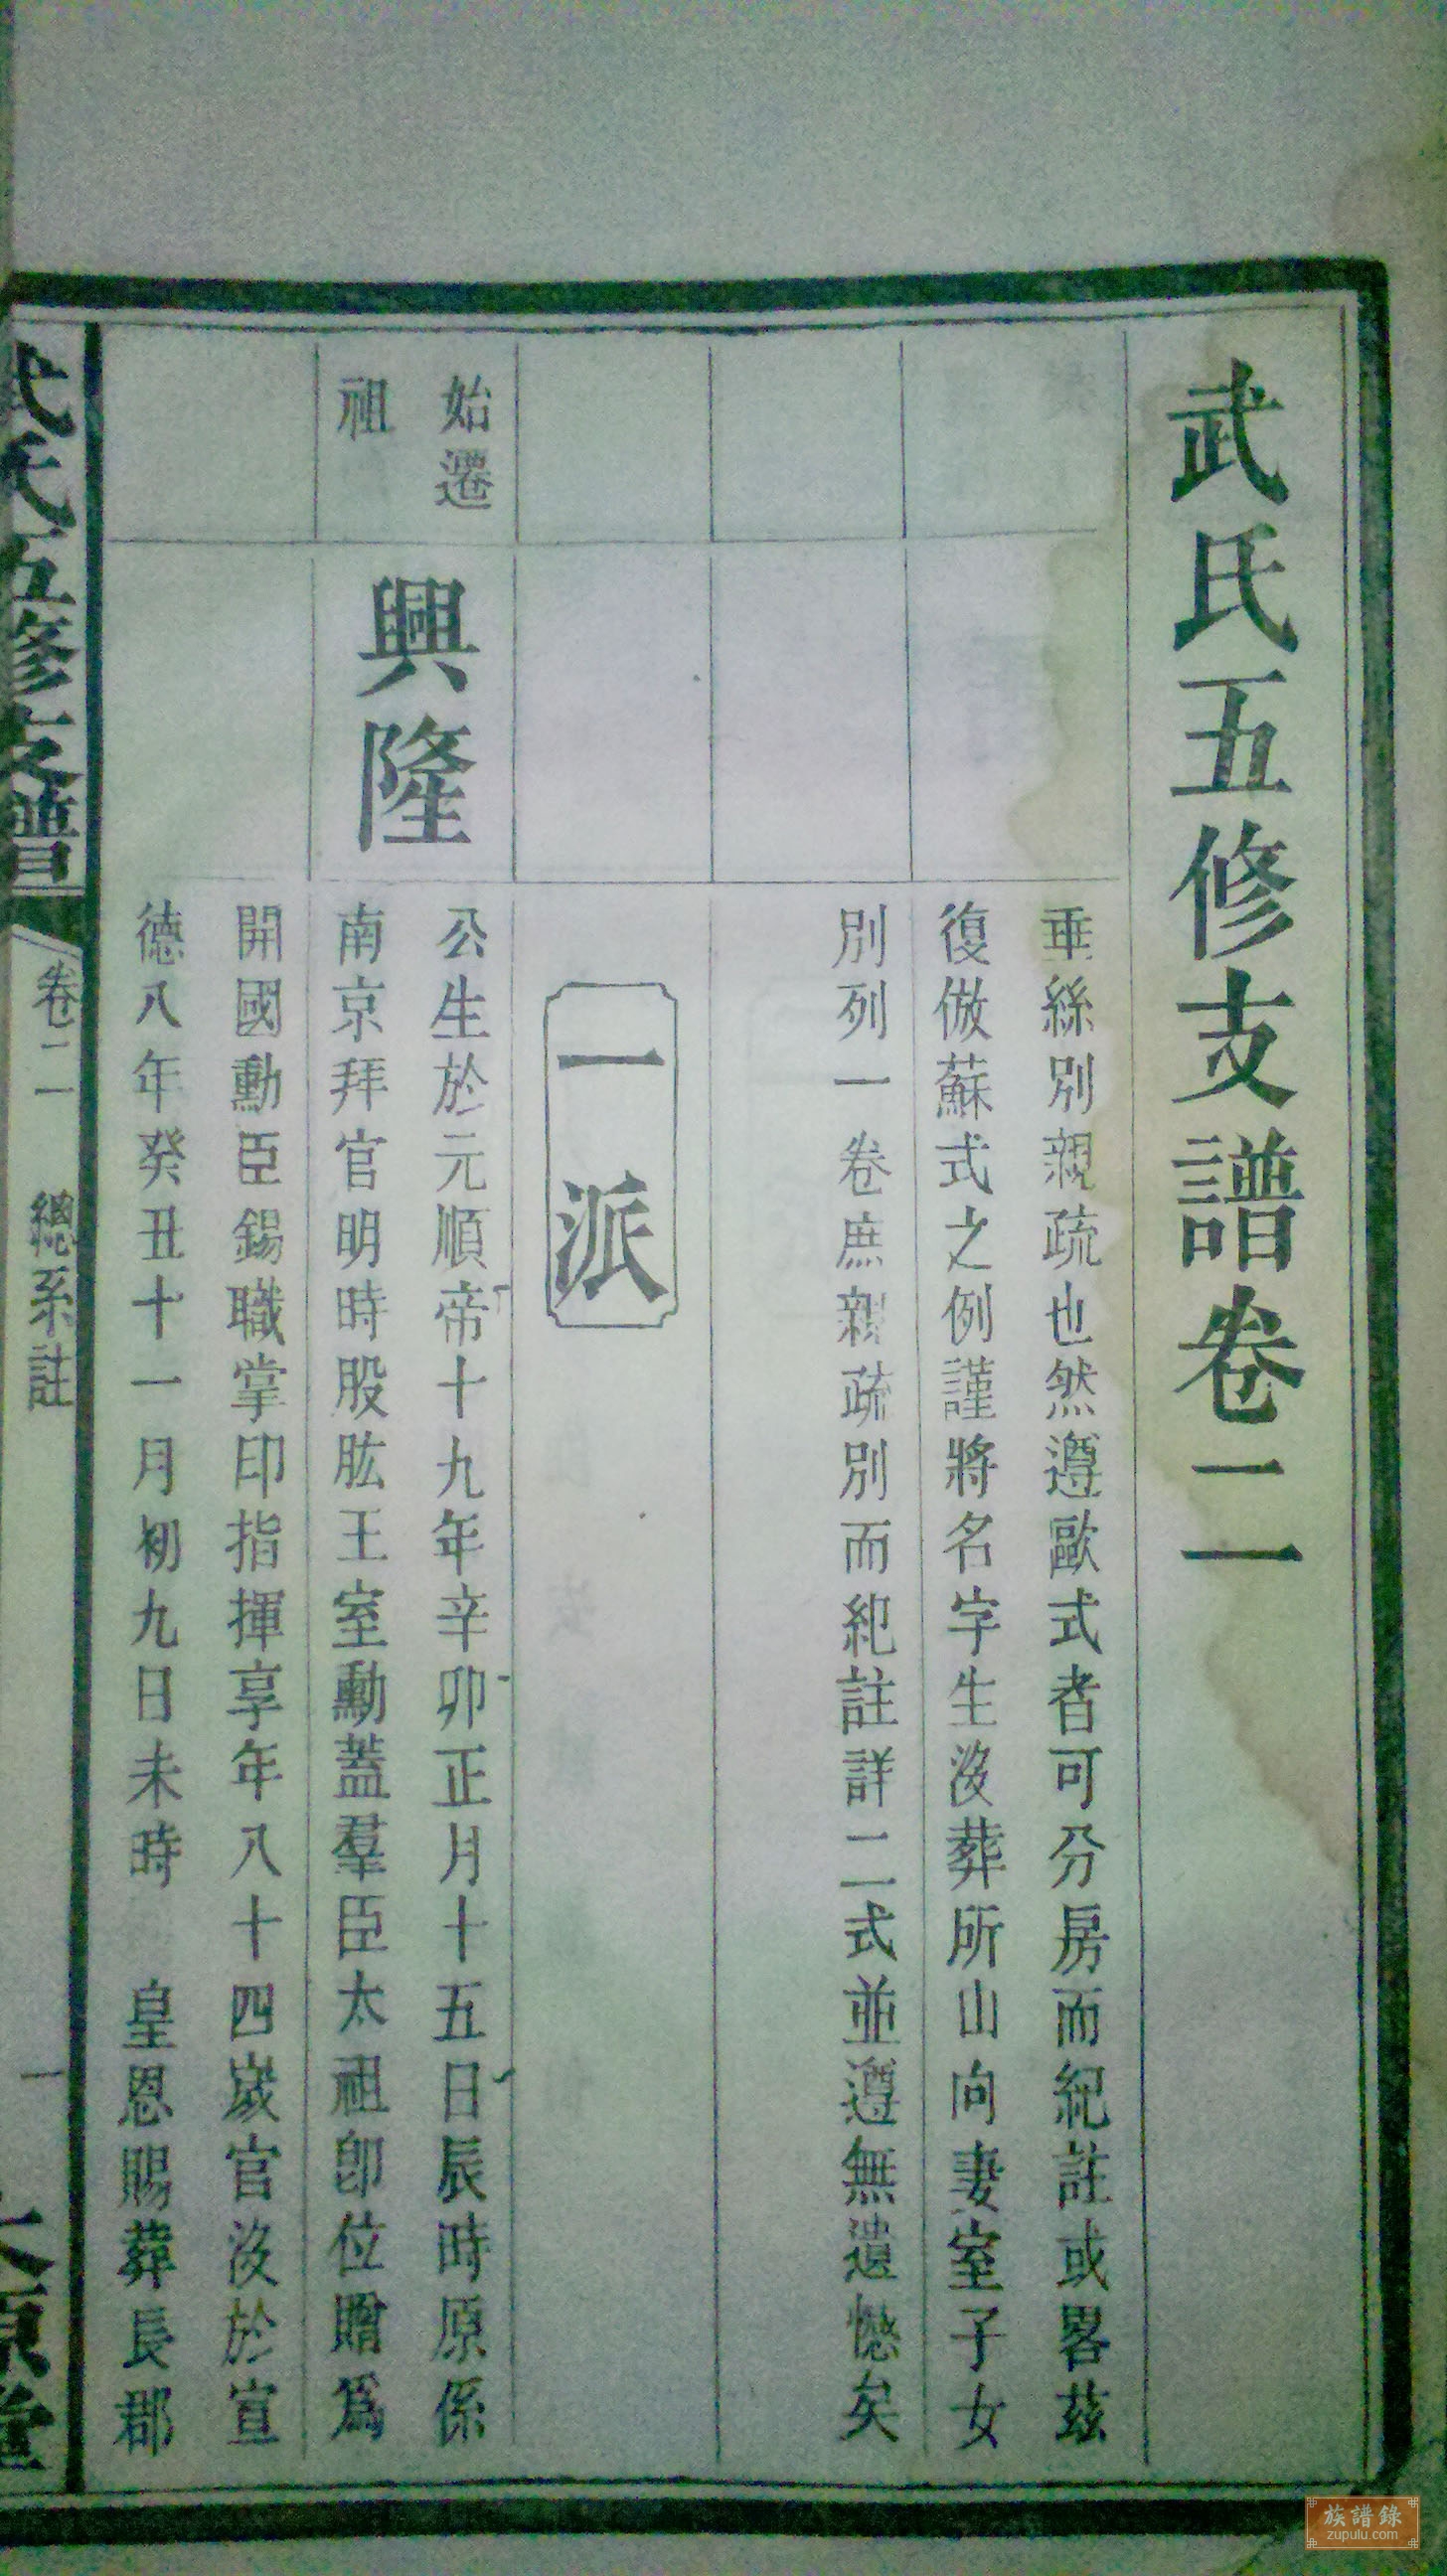 武氏五修支譜卷二
垂絲別親疏也然遵歐式者可分房而紀註或畧茲
復倣蘇式之例謹將名字生沒葬所山向妻室子女
別列一卷庶親疏別而紀註詳二式並遵無遺憾矣
一派
始遷
祖
興隆
公生於元順帝十九年辛卯正月十五日辰時原係
南京拜官明時股肱王室勳蓋羣臣太祖卽位贈爲
開國勳臣錫職掌印指揮享年八十四歲官沒於宣
德八年癸丑十一月初九日未時 皇恩賜葬長郡
武氏五修支譜
卷二 總系註
一
太原堂
族譜錄
zupulu.com